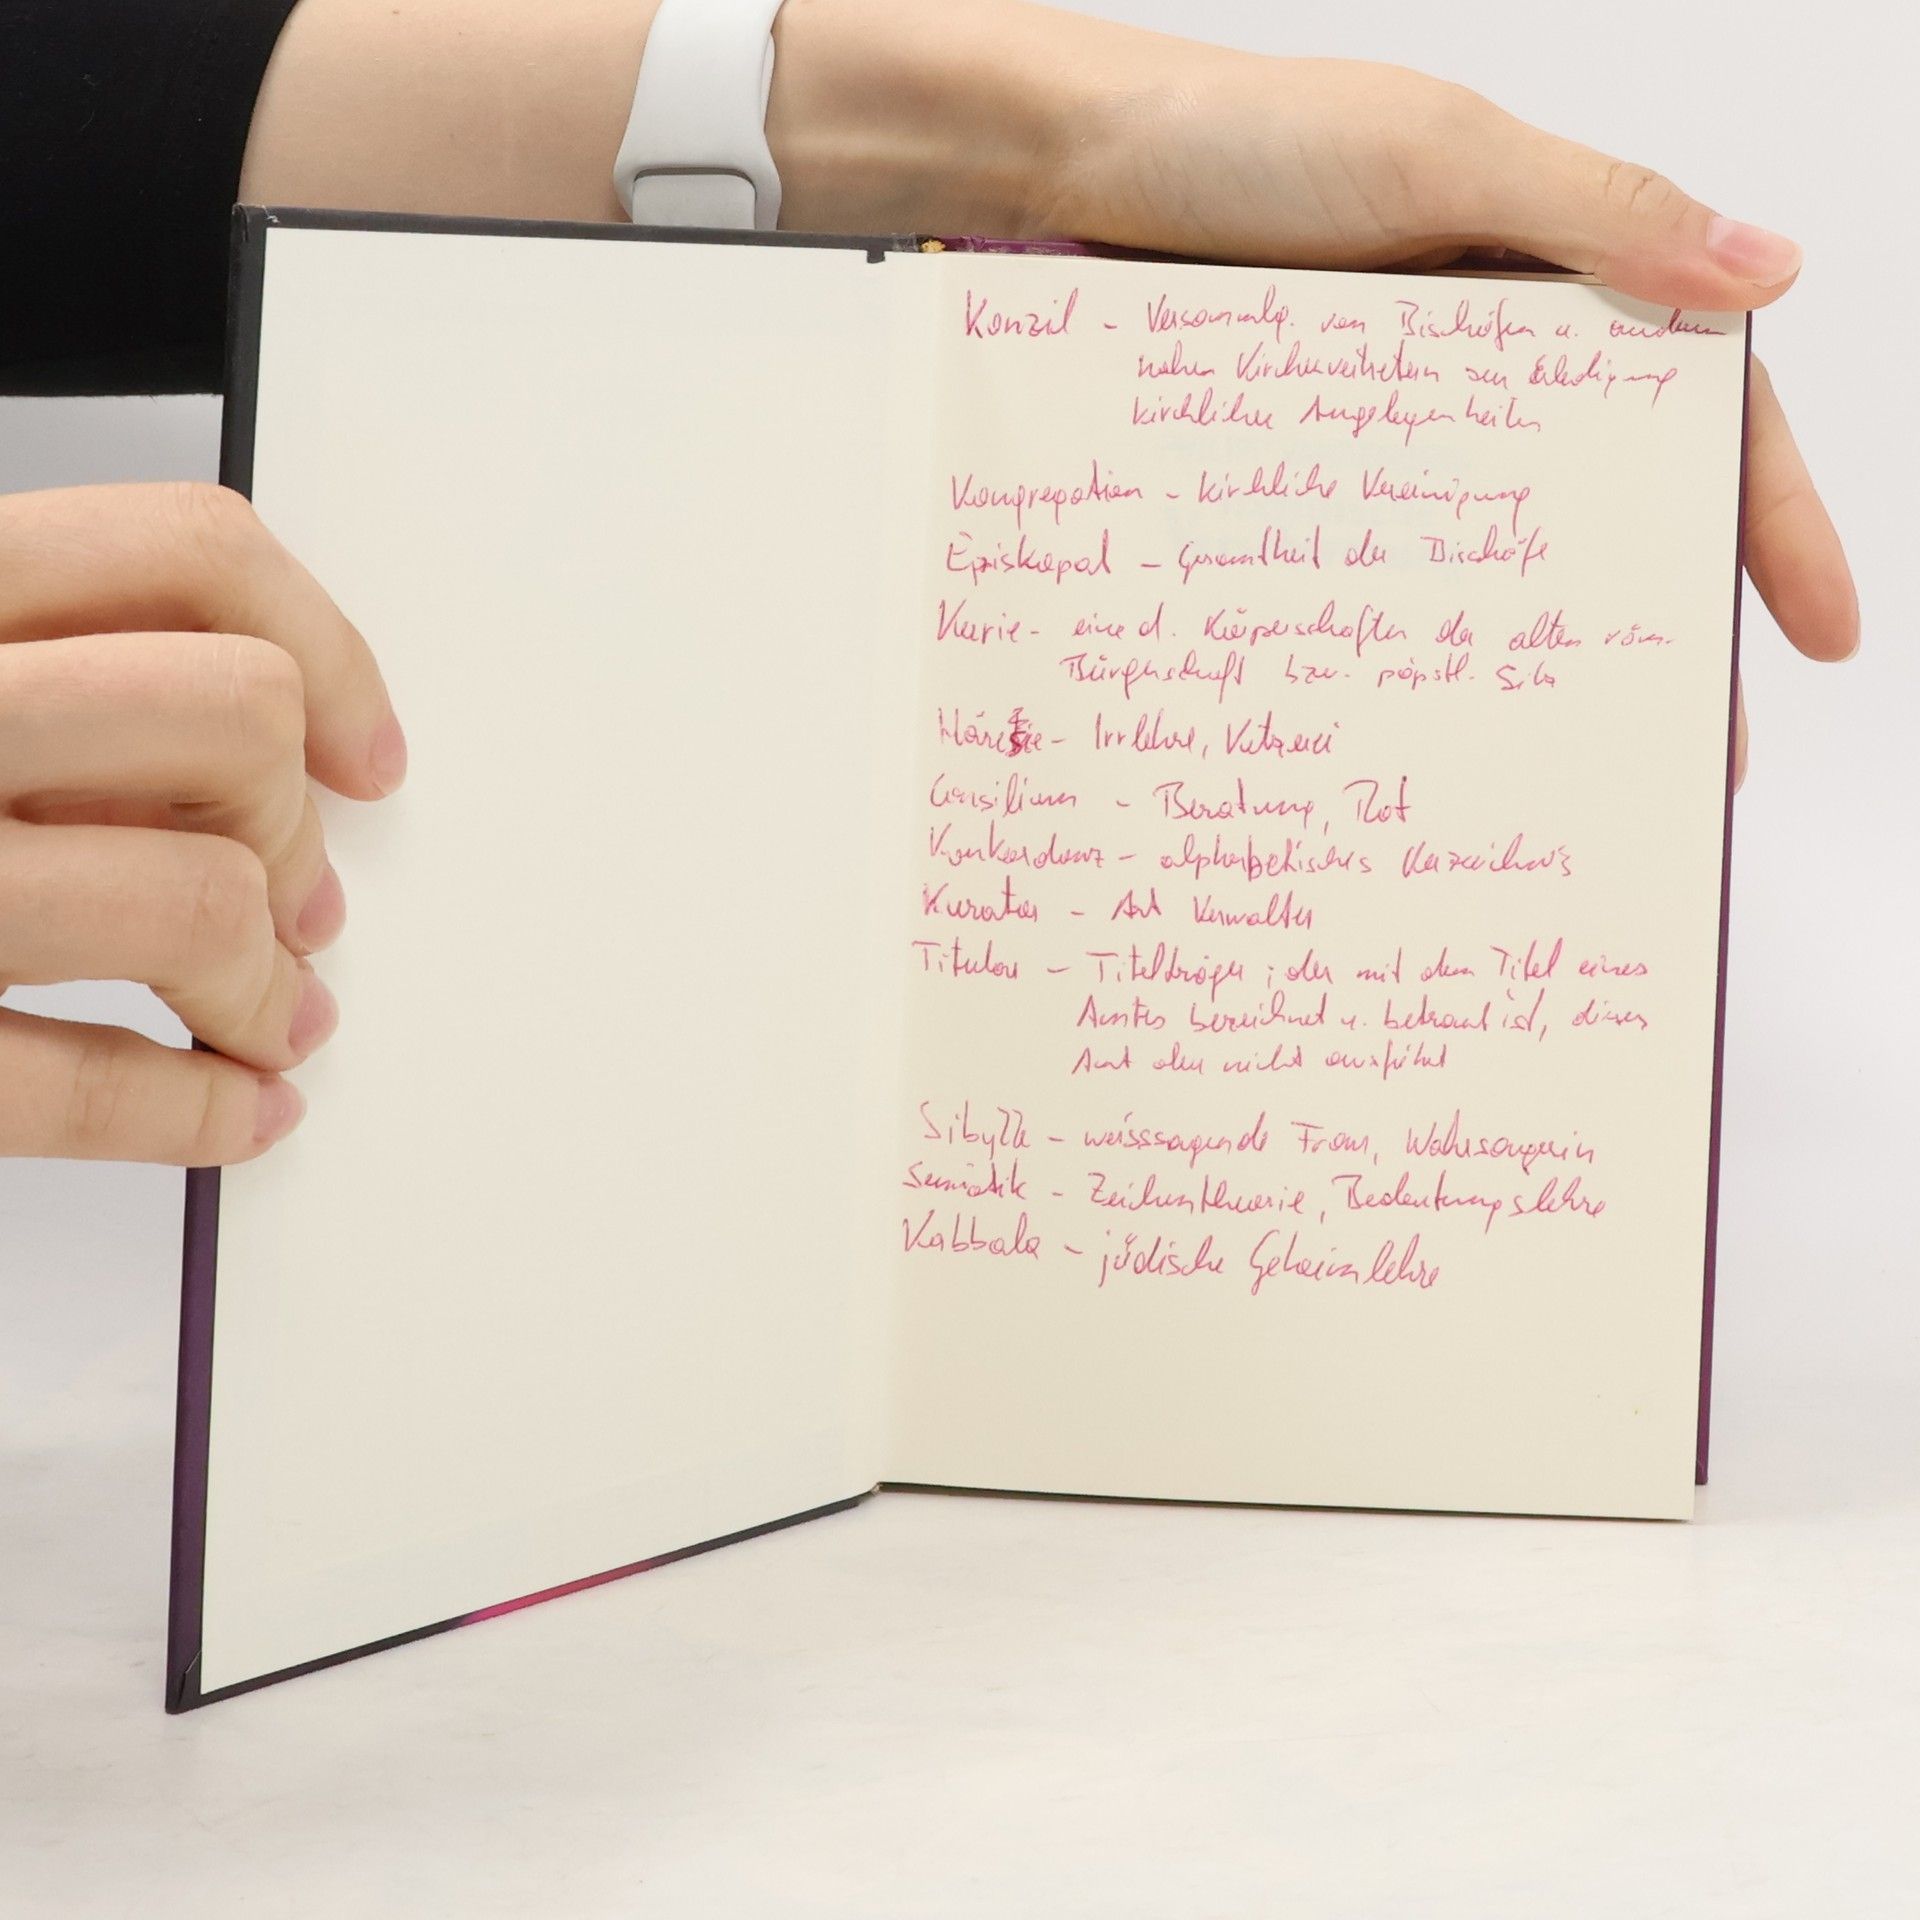 Konzil - Versammlg. von Bischöfen u. andern
hohen Kirchenvertretern zur Erledigung
kirchlicher Angelegenheiten
Kongregation - kirchliche Vereinigung
Episkopat - Gesamtheit der Bischöfe
Kurie - eine d. Körperschaften der alten röm.
Bürgerschaft bzw. päpstl. Sitz
Häresie - Irrlehre, Ketzerei
Consilium - Beratung, Rat
Konkordanz - alphabetisches Verzeichnis
Kurator - Art Verwalter
Titular - Titelträger; der mit dem Titel eines
Amtes bezeichnet u. betraut ist, dieses
Amt aber nicht ausführt
Sibylle - weisssagende Frau, Wahrsagerin
Semiotik - Zeichentheorie, Bedeutungslehre
Kabbala - jüdische Geheimlehre